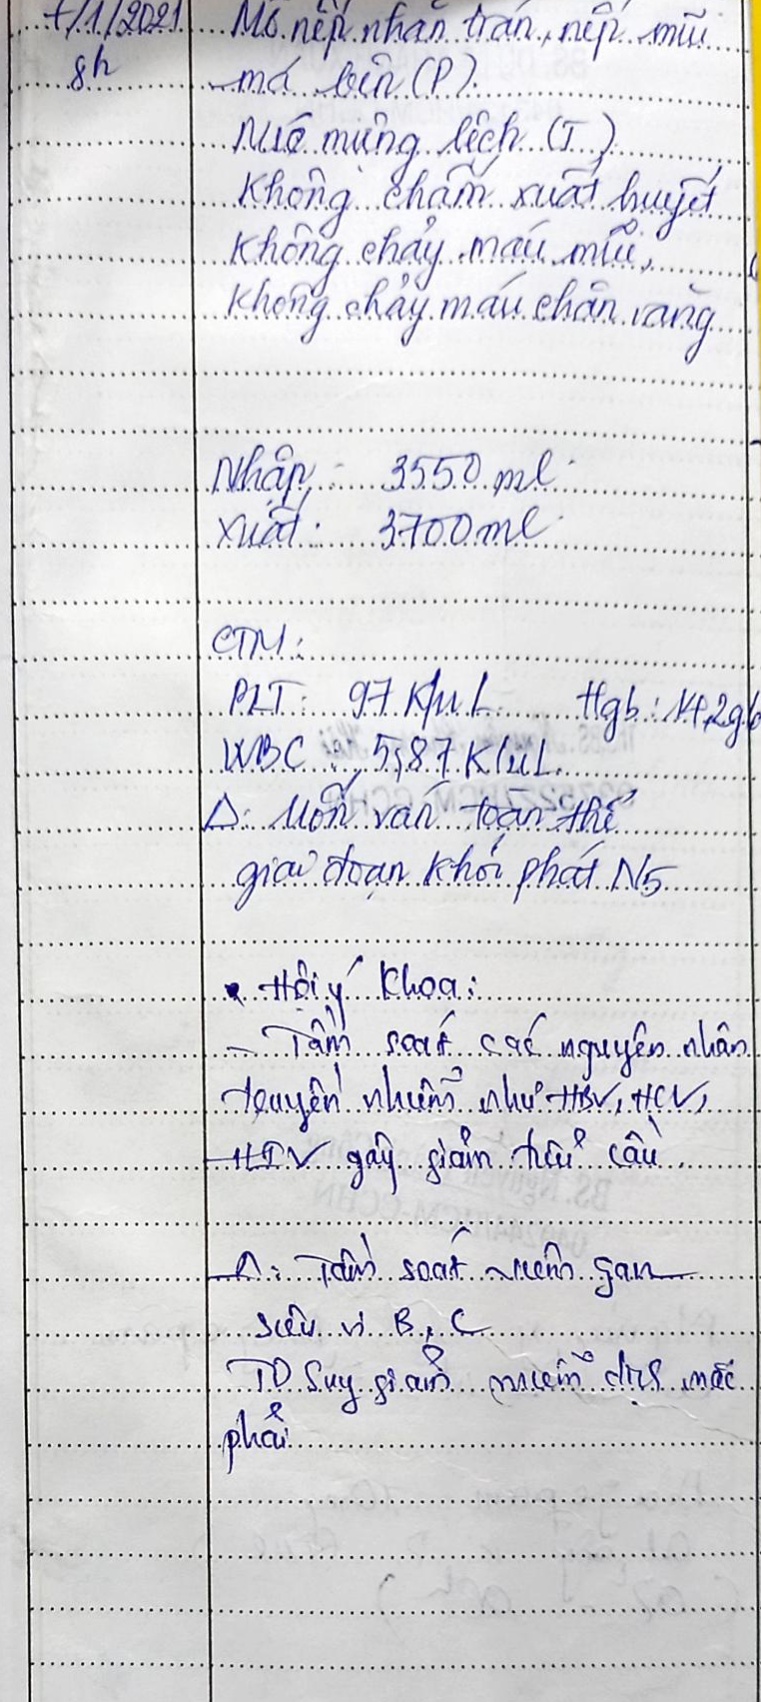 7/1/2021 Mờ nếp nhăn trán, nếp mũi
8h má bên (P).
Nhe miệng lệch (T)
Không chấm xuất huyết
Không chảy máu mũi,
Không chảy máu chân răng
Nhập: 3550 ml
Xuất: 3700 ml
CTM:
PLT: 97 K/uL Hgb: 14,2 g/
WBC: 5,87 K/uL
Δ: Uốn ván toàn thể
giai đoạn khởi phát N5
Hội ý khoa:
- Tầm soát các nguyên nhân
truyền nhiễm như HBV, HCV,
HIV gây giảm tiểu cầu.
Δ: Tầm soát viêm gan
siêu vi B, C
TD Suy giảm miễn dịch mắc
phải